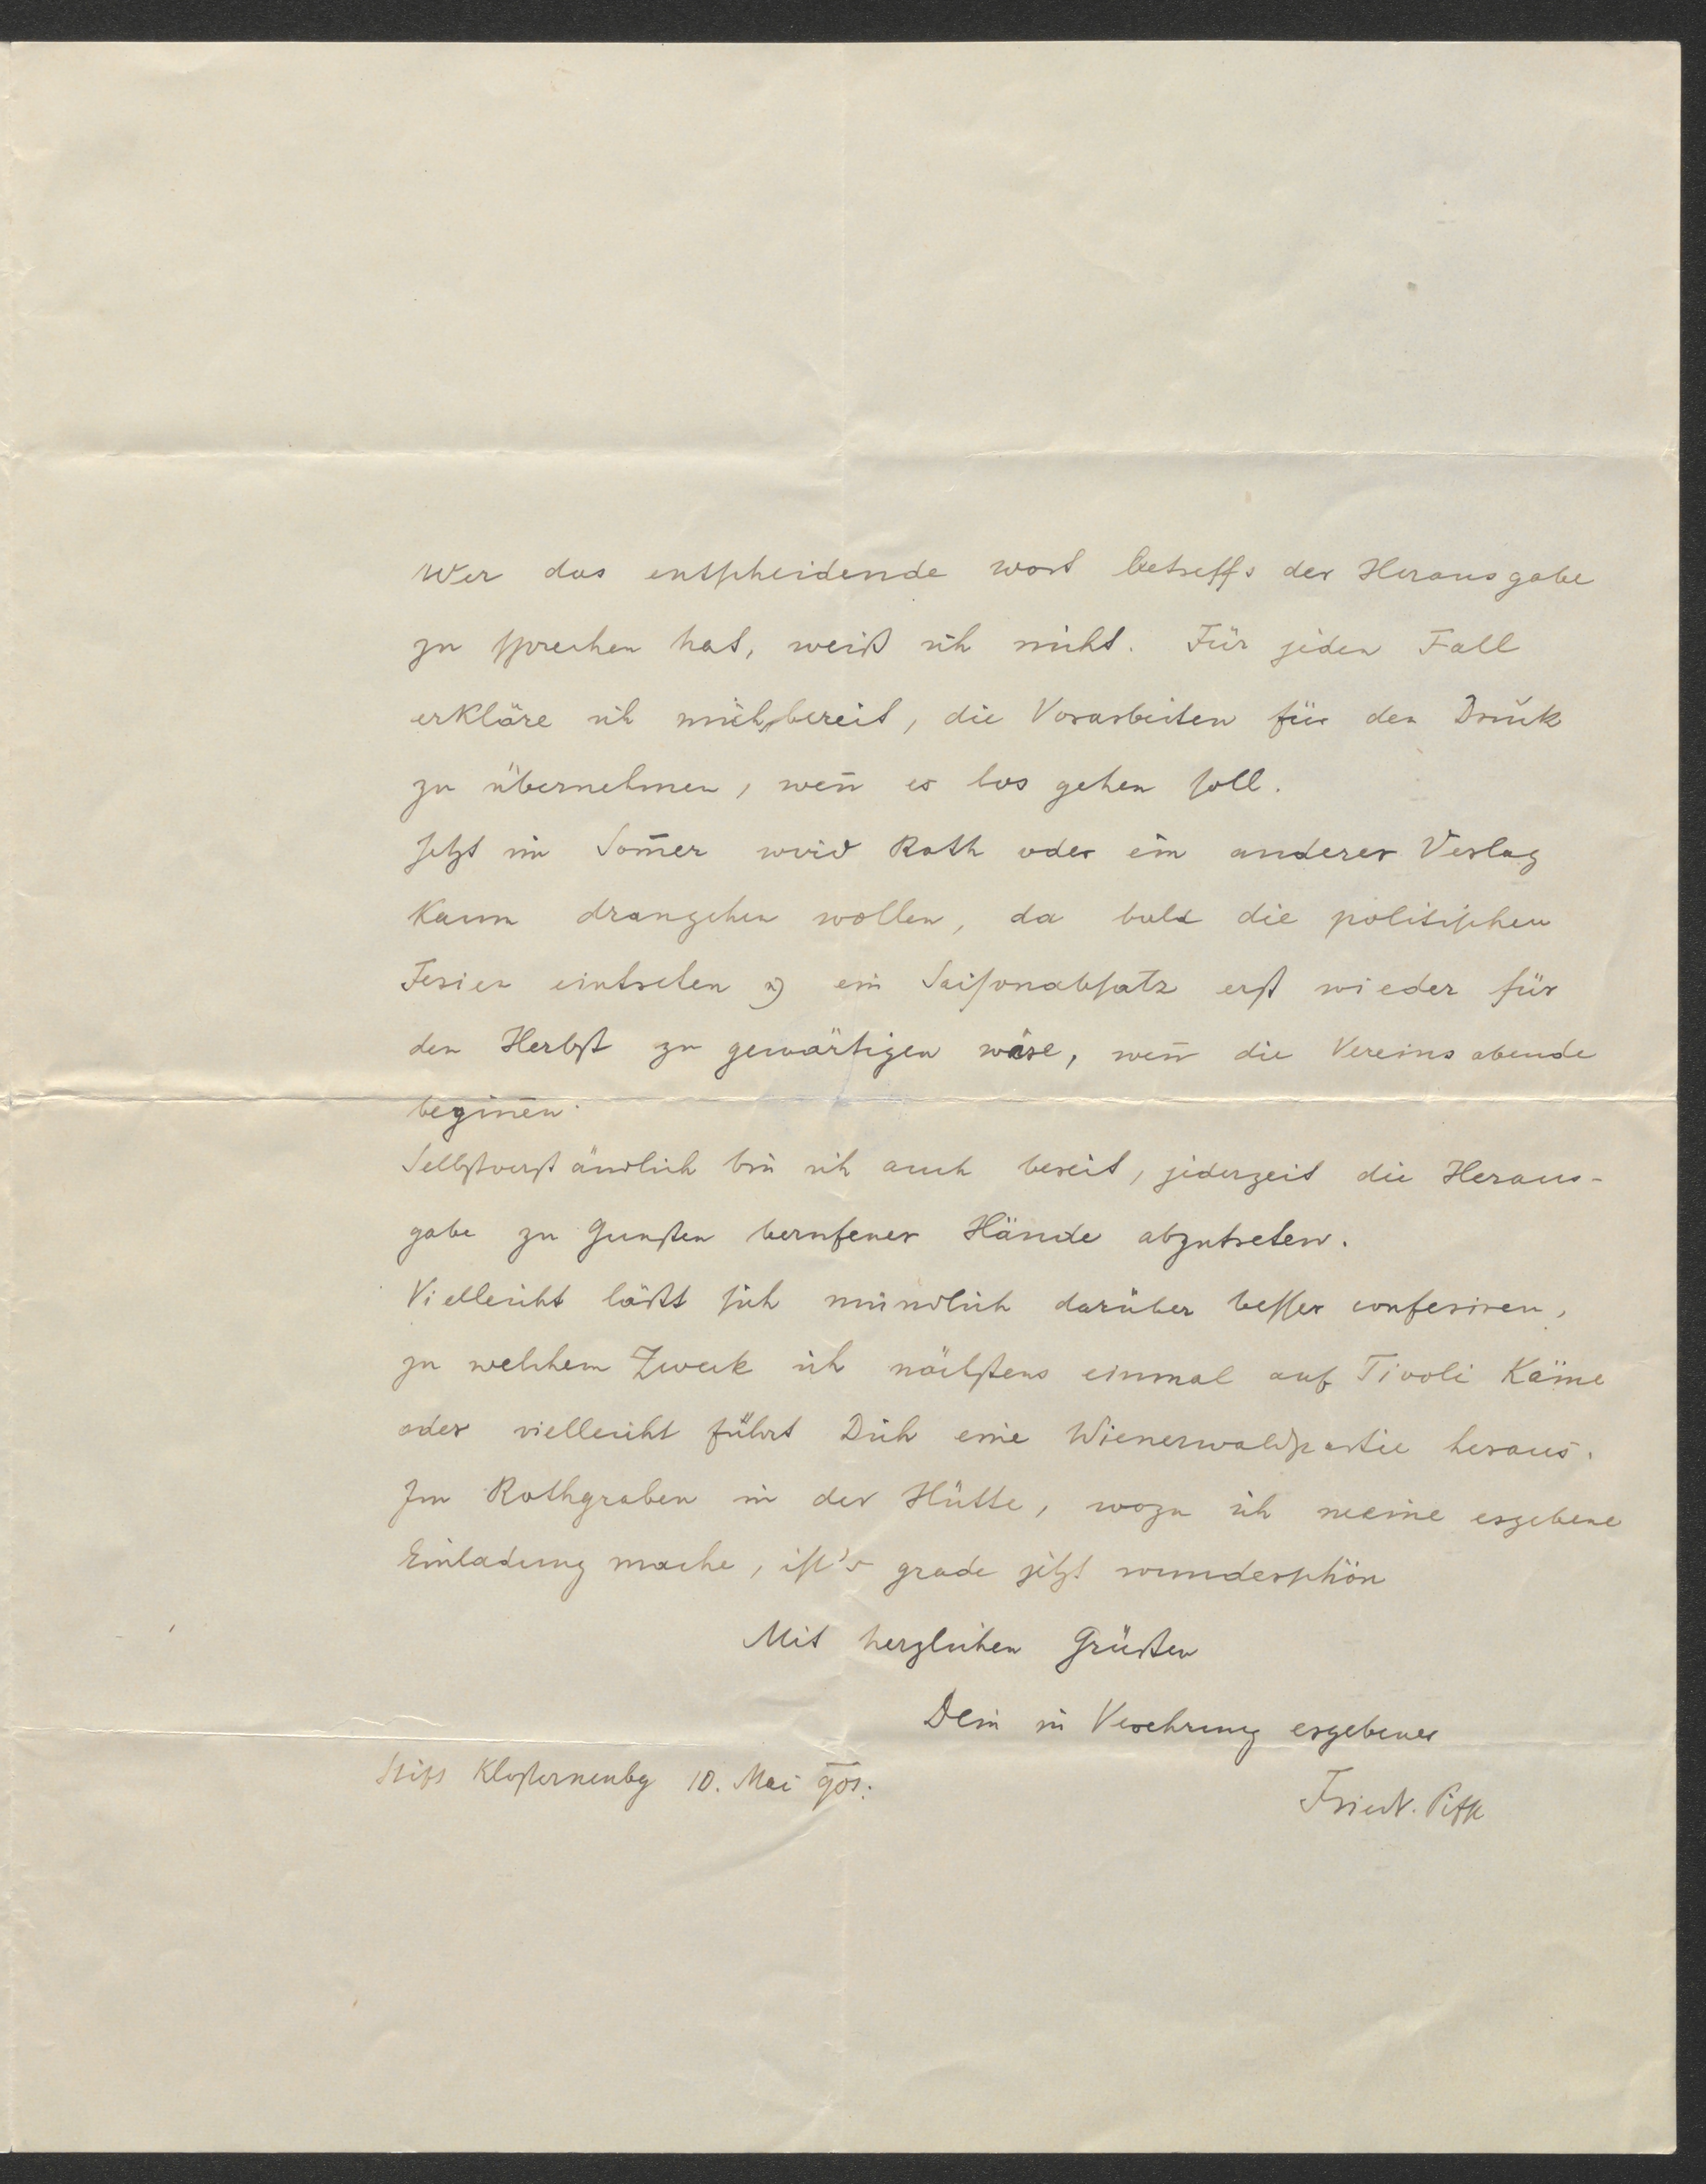 Wer das entscheidende Wort betreffs der Herausgabe
zu sprechen hat, weiß ich nicht. Für jeden Fall
erkläre ich mich bereit, die Vorarbeiten für den Druck
zu übernehmen, wen̄ es los gehen soll.
Jetzt im Som̄er wird Roth oder ein anderer Verlag
kaum drangehen wollen, da bald die politischen
Ferien eintreten u ein Saisonabsatz erst wieder für
den Herbst zu gewärtigen wäre, wen̄ die Vereinsabende
begin̄en.
Selbstverständlich bin ich auch bereit, jederzeit die Heraus-
gabe zu Gunsten berufener Hände abzutreten.
Vielleicht läßt sich mündlich darüber besser conferiren,
zu welchem Zweck ich nächstens einmal auf Tivoli käme
oder vielleicht führt Dich eine Wienerwaldpartie heraus.
Im Rothgraben in der Hütte, wozu ich meine ergebene
Einladung mache, ist's grade jetzt wunderschön
Mit herzlichen Grüßen
Dein in Verehrung ergebener
Stift Klosterneubg 10. Mai 901.
Friedr.